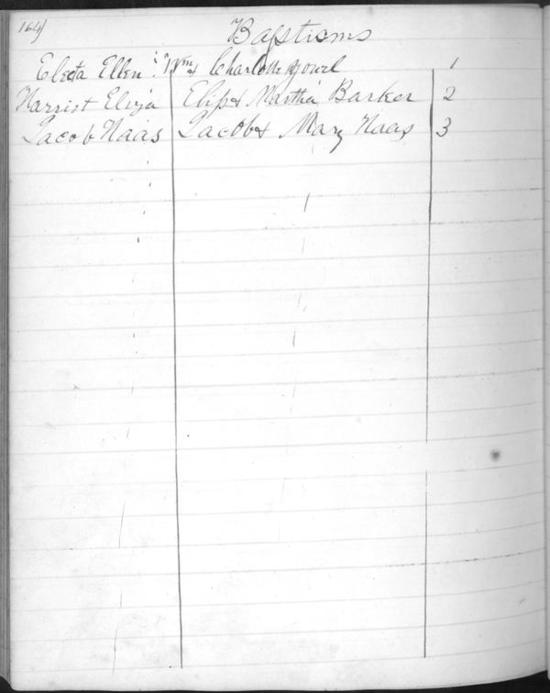 164
Baptisms
Electa Ellen Wm & Charlotte 1
Harrist Eliza Elip & Martha Barker 2
Jacob Haas Jacob & Mary Haas 3